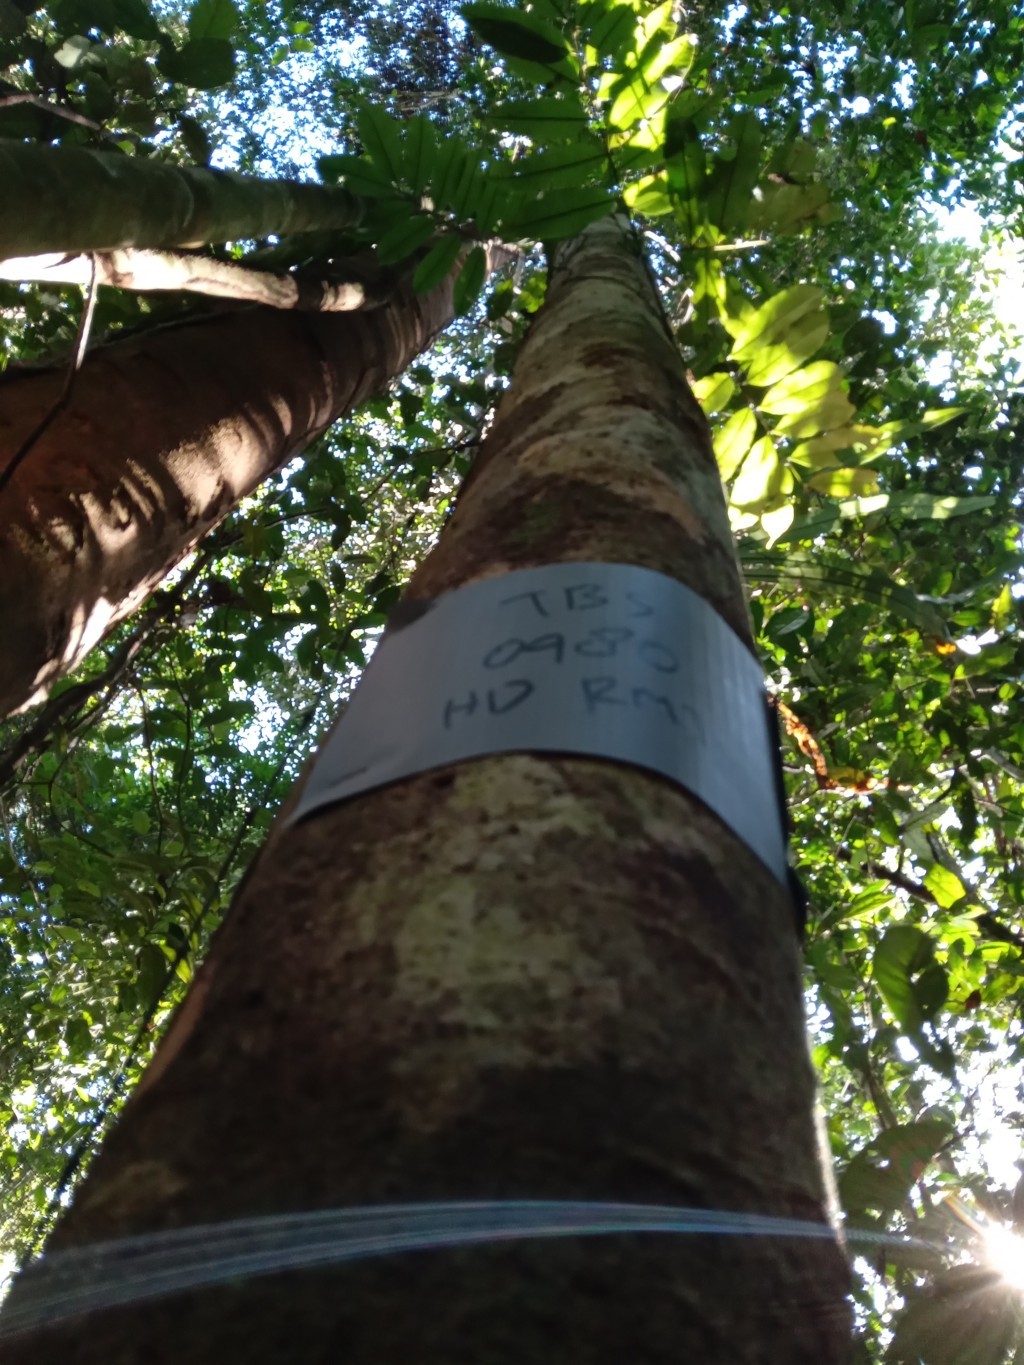 TBS
0980
HD RM1